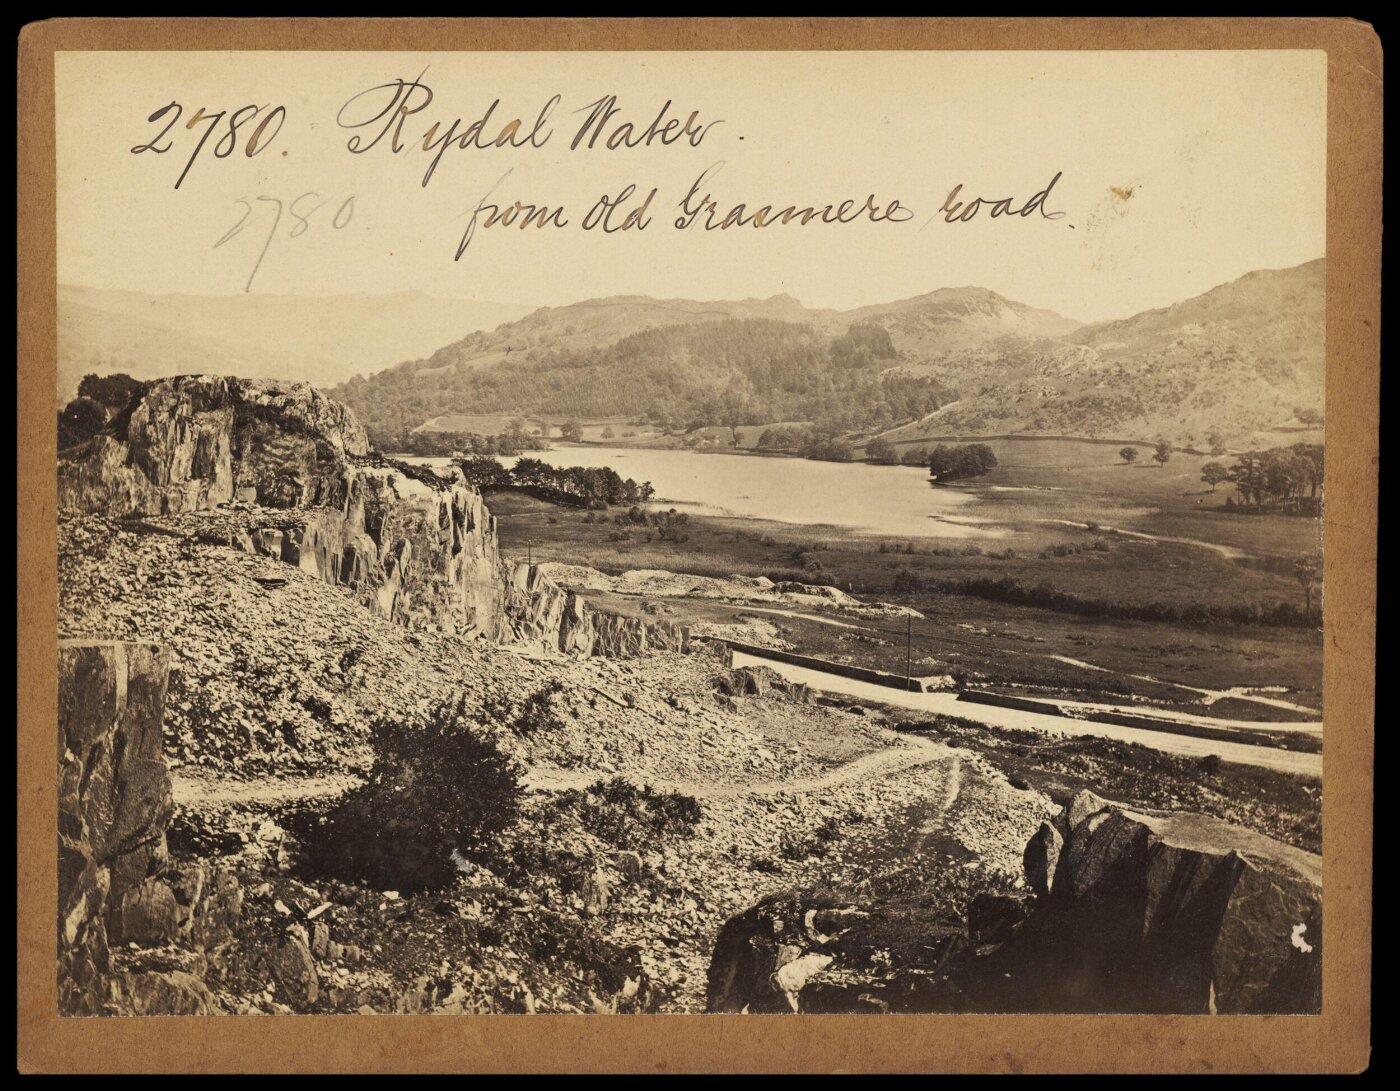 2780. Rydal Water.
2780. from Old Grasmere road.